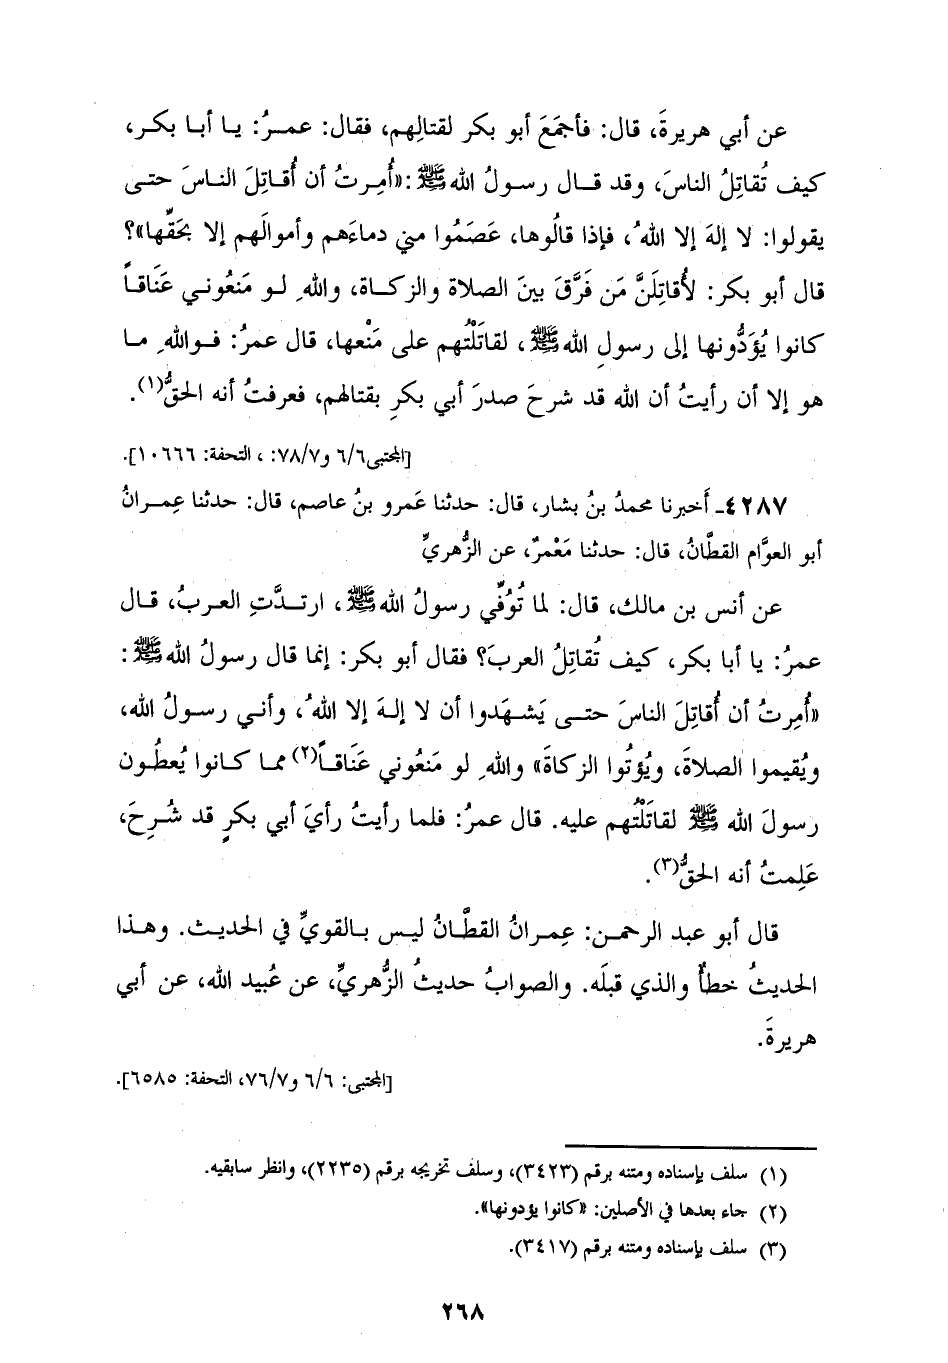 عن أبي هريرةَ، قال: فأجمَعَ أبو بكر لقتالِهم، فقال: عمـرُ: يـا أبـا بكـر،
كيف تُقاتِلُ الناسَ، وقد قـال رسـولُ الله ﷺ: «أُمِـرتُ أن أُقاتِلَ النـاسَ حتـى
يقولوا: لا إلهَ إلا اللهُ، فإذا قالُوها، عَصَمُوا مني دماءَهم وأموالَهم إلا بحَقِّها»؟
قال أبو بكر: لأُقاتِلَنَّ مَن فَرَّقَ بينَ الصلاة والزكـاة، واللهِ لـو مَنَعُوني عَنَاقـاً
كانوا يُؤَدُّونها إلى رسولِ الله ﷺ، لقاتَلْتُهم على مَنْعها، قال عمرُ: فـواللهِ مـا
هو إلا أن رأيتُ أن الله قد شرحَ صدرَ أبي بكرٍ بقتالهم، فعرفتُ أنه الحقُّ(١).
[المجتبى٦/٦ و٧٨/٧: ، التحفة: ١٠٦٦٦].
٤٢٨٧ـ أَخبرنا محمدُ بنُ بشار، قال: حدثنا عَمرو بنُ عاصم، قال: حدثنا عِمـرانُ
أبو العوَّام القطَّانُ، قال: حدثنا مَعْمرٌ، عن الزُّهريِّ
عن أنس بن مالك، قال: لما تُوُفِّي رسولُ الله ﷺ، ارتـدَّتِ العـربُ، قـال
عمرُ: يا أبا بكر، كيف تُقاتِلُ العربَ؟ فقال أبو بكر: إنما قال رسولُ الله ﷺ:
«أُمِرتُ أن أُقاتِلَ الناسَ حتـى يَشـهَدوا أن لا إلـهَ إلا اللهُ، وأني رسـولُ الله،
ويُقيموا الصلاةَ، ويُؤتُوا الزكاةَ» واللهِ لو مَنَعُوني عَنَاقـاً(٢) مما كـانوا يُعطُـون
رسولَ الله ﷺ لقاتَلْتُهم عليه. قال عمرُ: فلما رأيتُ رأيَ أبي بكرٍ قد شُـرِحَ،
عَلِمتُ أنه الحقُّ(٣).
قال أبو عبد الرحمـن: عِمـرانُ القطَّـانُ ليس بـالقويِّ في الحديـث. وهـذا
الحديثُ خطأٌ والذي قبلَه. والصوابُ حديثُ الزُّهريِّ، عن عُبيد الله، عن أبي
هريرةَ.
[المجتبى: ٦/٦ و٧٦/٧، التحفة: ٦٥٨٥].
(١) سلف بإسناده ومتنه برقم (٣٤٢٣)، وسلف تخريجه برقم (٢٢٣٥)، وانظر سابقيه.
(٢) جاء بعدها في الأصلين: «كانوا يؤدونها».
(٣) سلف بإسناده ومتنه برقم (٣٤١٧).
٢٦٨